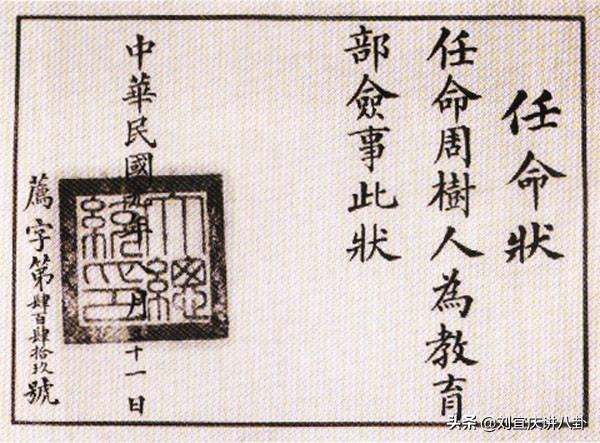 任命狀
任命周樹人為教育
部僉事此狀
中華民國元年八月二十一日
大總統印
薦字第肆百肆拾玖號
头条 @刘宣庆讲八卦